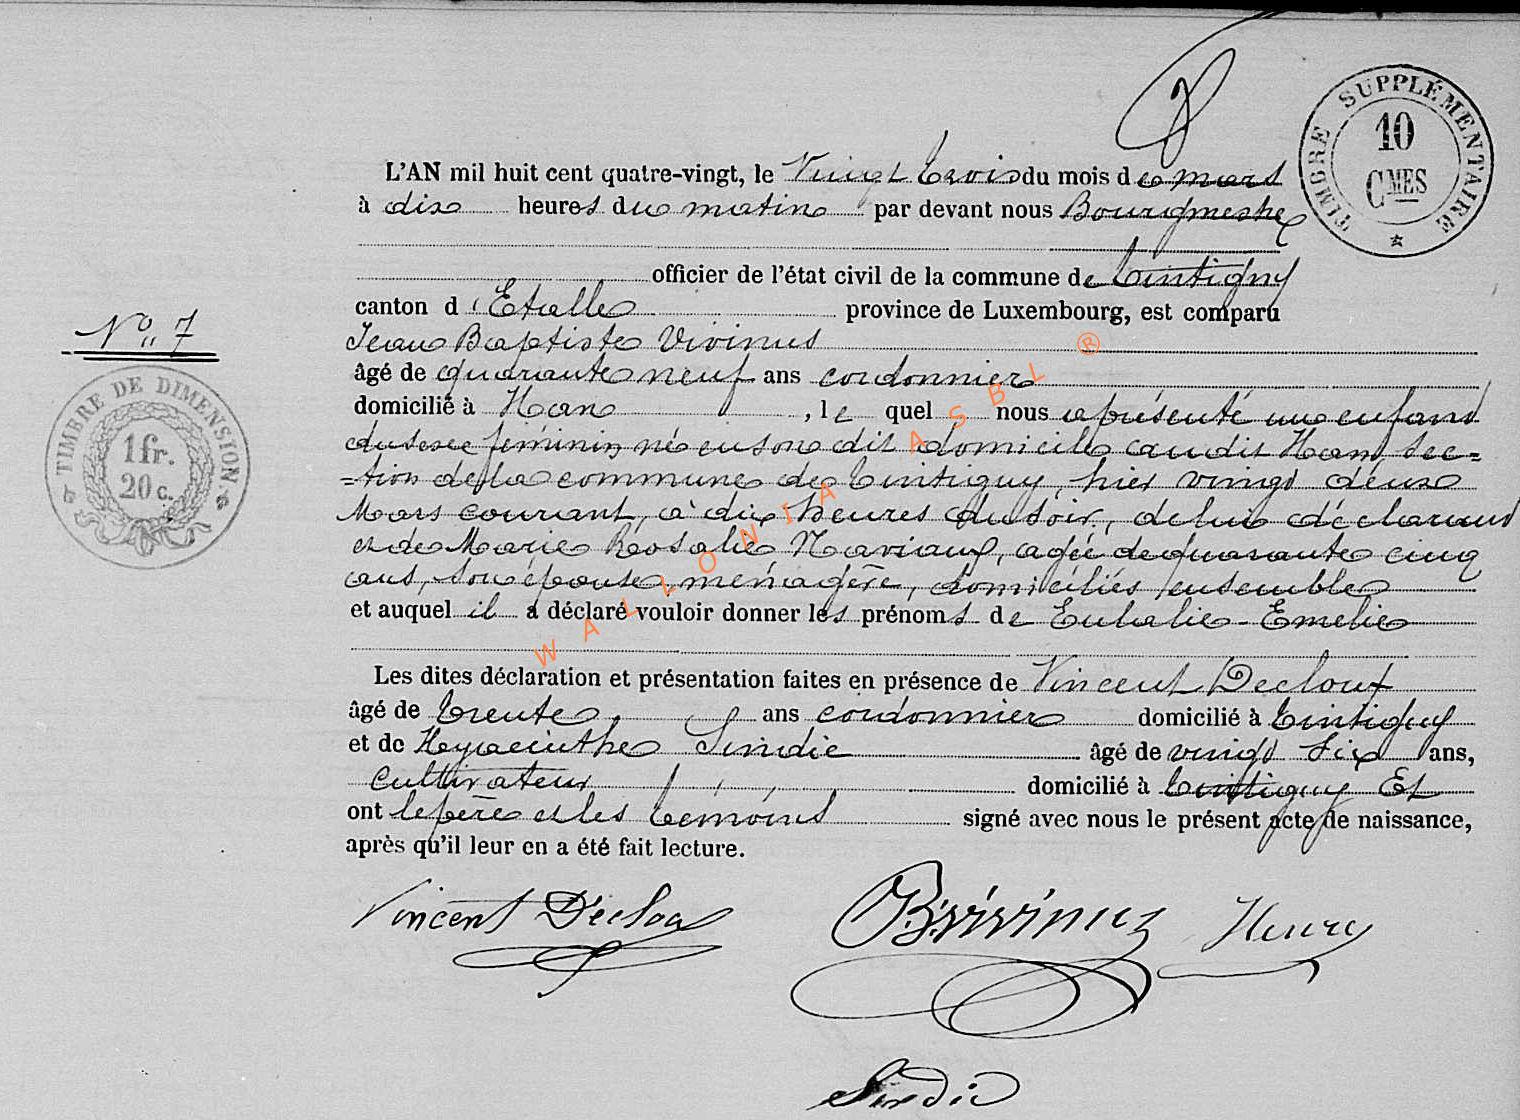 TIMBRE SUPPLÉMENTAIRE
10
CMES
L'AN mil huit cent quatre-vingt, le Vingt trois du mois de mars
à dix heures du matin par devant nous Bourgmestre
officier de l'état civil de la commune de tintigny
canton d'Etalle province de Luxembourg, est comparu
No. 7
Jean Baptiste Vivinus
âgé de quarante neuf ans cordonnier
domicilié à Han, le quel nous a présenté un enfant
TIMBRE DE DIMENSION.
1 fr.
20 c.
du sexe féminin né en son dit domicile audit Han sec=
=tion de la commune de tintigny, hier vingt deux
Mars courant, à dix heures du soir, de lui déclarant
et de Marie Rosalie agée de quarante cinq
ans, son épouse, ménagère, domiciliés ensemble
et auquel il a déclaré vouloir donner les prénoms de Eulalie-Emelie
WALLONIA ASBL ®
Les dites déclaration et présentation faites en présence de Vincent Decloux
âgé de trente ans cordonnier domicilié à tintigny
et de Hyacinthe Sindic âgé de vingt six ans,
cultivateur domicilié à tintigny Et
ont le père et les témoins signé avec nous le présent acte de naissance,
après qu'il leur en a été fait lecture.
Vincent Decloux JBVivinus Henry
Sindic